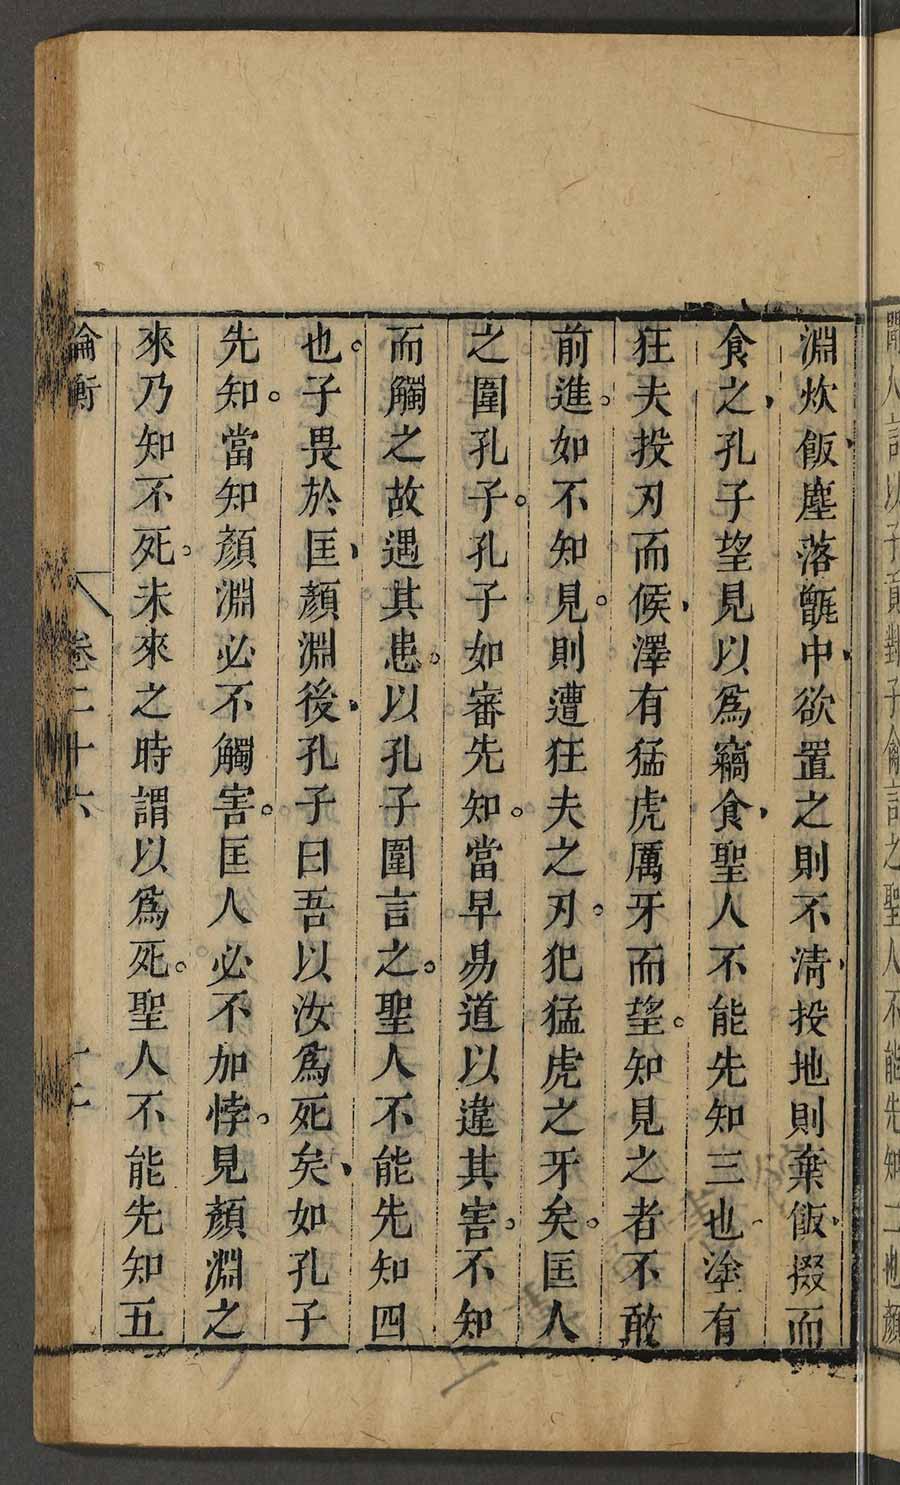 淵炊飯塵落甑中欲置之則不清投地則棄飯掇而
食之孔子望見以爲竊食聖人不能先知三也塗有
狂夫投刃而候澤有猛虎厲牙而望。知見之者不敢
前進。如不知見。則遭狂夫之刃。犯猛虎之牙矣。匡人
之圍孔子。孔子如審先知。當早易道以違其害。不知
而觸之故遇其患。以孔子圍言之。聖人不能先知四
也。子畏於匡顏淵後孔子曰吾以汝爲死矣如孔子
先知。當知顏淵必不觸害。匡人必不加悖。見顏淵之
來乃知不死。未來之時謂以爲死。聖人不能先知五
論衡 卷二十六 十二